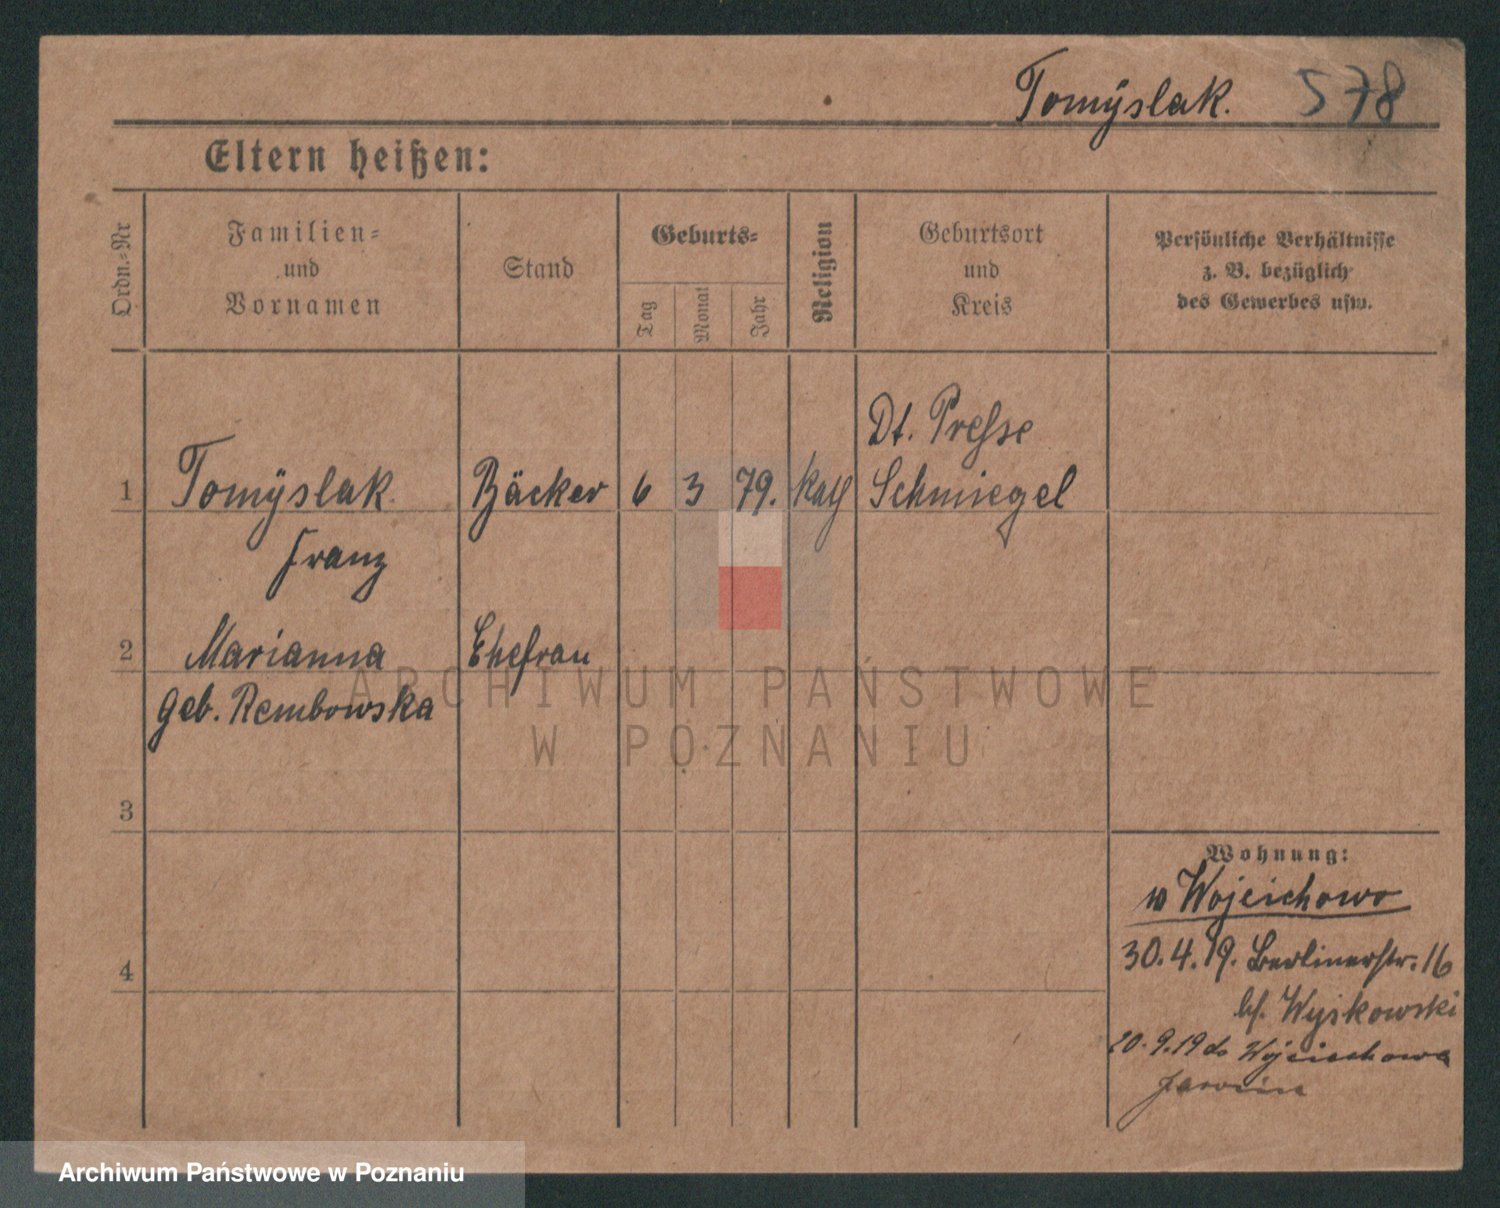 Tomÿslak. 578
Eltern heißen:
Ordn.-Nr
Familien- und Vornamen
Stand
Geburts-
Tag
Monat
Jahr
Religion
Geburtsort und Kreis
Persönliche Verhältnisse
z. B. bezüglich
des Gewerbes usw.
Dt. Presse
1 Tomÿslak Bäcker 6 3 79. Kath Schmiegel
Franz
2 Marianna Ehefrau
geb. Rembowska
3
4
Wohnung:
w Wojcichowo
30.4.19. Berlinerstr. 16
bf. Wyskowski
20.9.19 do Wojciechowa
Jarocin
ARCHIWUM PAŃSTWOWE
W POZNANIU
Archiwum Państwowe w Poznaniu